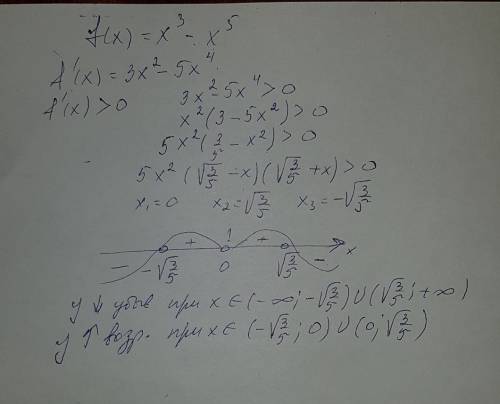 f(x) = x³ - x⁵
f'(x) = 3x² - 5x⁴
f'(x) > 0
3x² - 5x⁴ > 0
x²(3 - 5x²) > 0
5x²(3/5 - x²) > 0
5x²(√3/5 - x)(√3/5 + x) > 0
x₁ = 0 x₂ = √3/5 x₃ = -√3/5
- + 1 + -
-√3/5 0 √3/5 x
y ↓ убыв при x ∈ (-∞; -√3/5) ∪ (√3/5; +∞)
y ↑ возр. при x ∈ (-√3/5; 0) ∪ (0; √3/5)